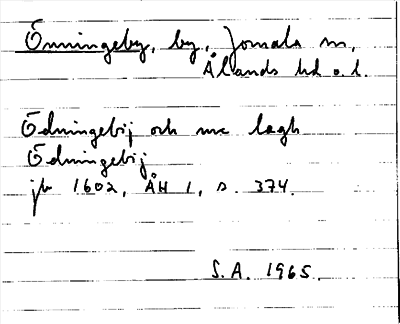 Önningeby, by, Jomala sn,
Ålands hd o. l.
Ödningebij och me lagh
Ödningebij
jb 1602, ÅH 1, s. 374.
S.A. 1965.